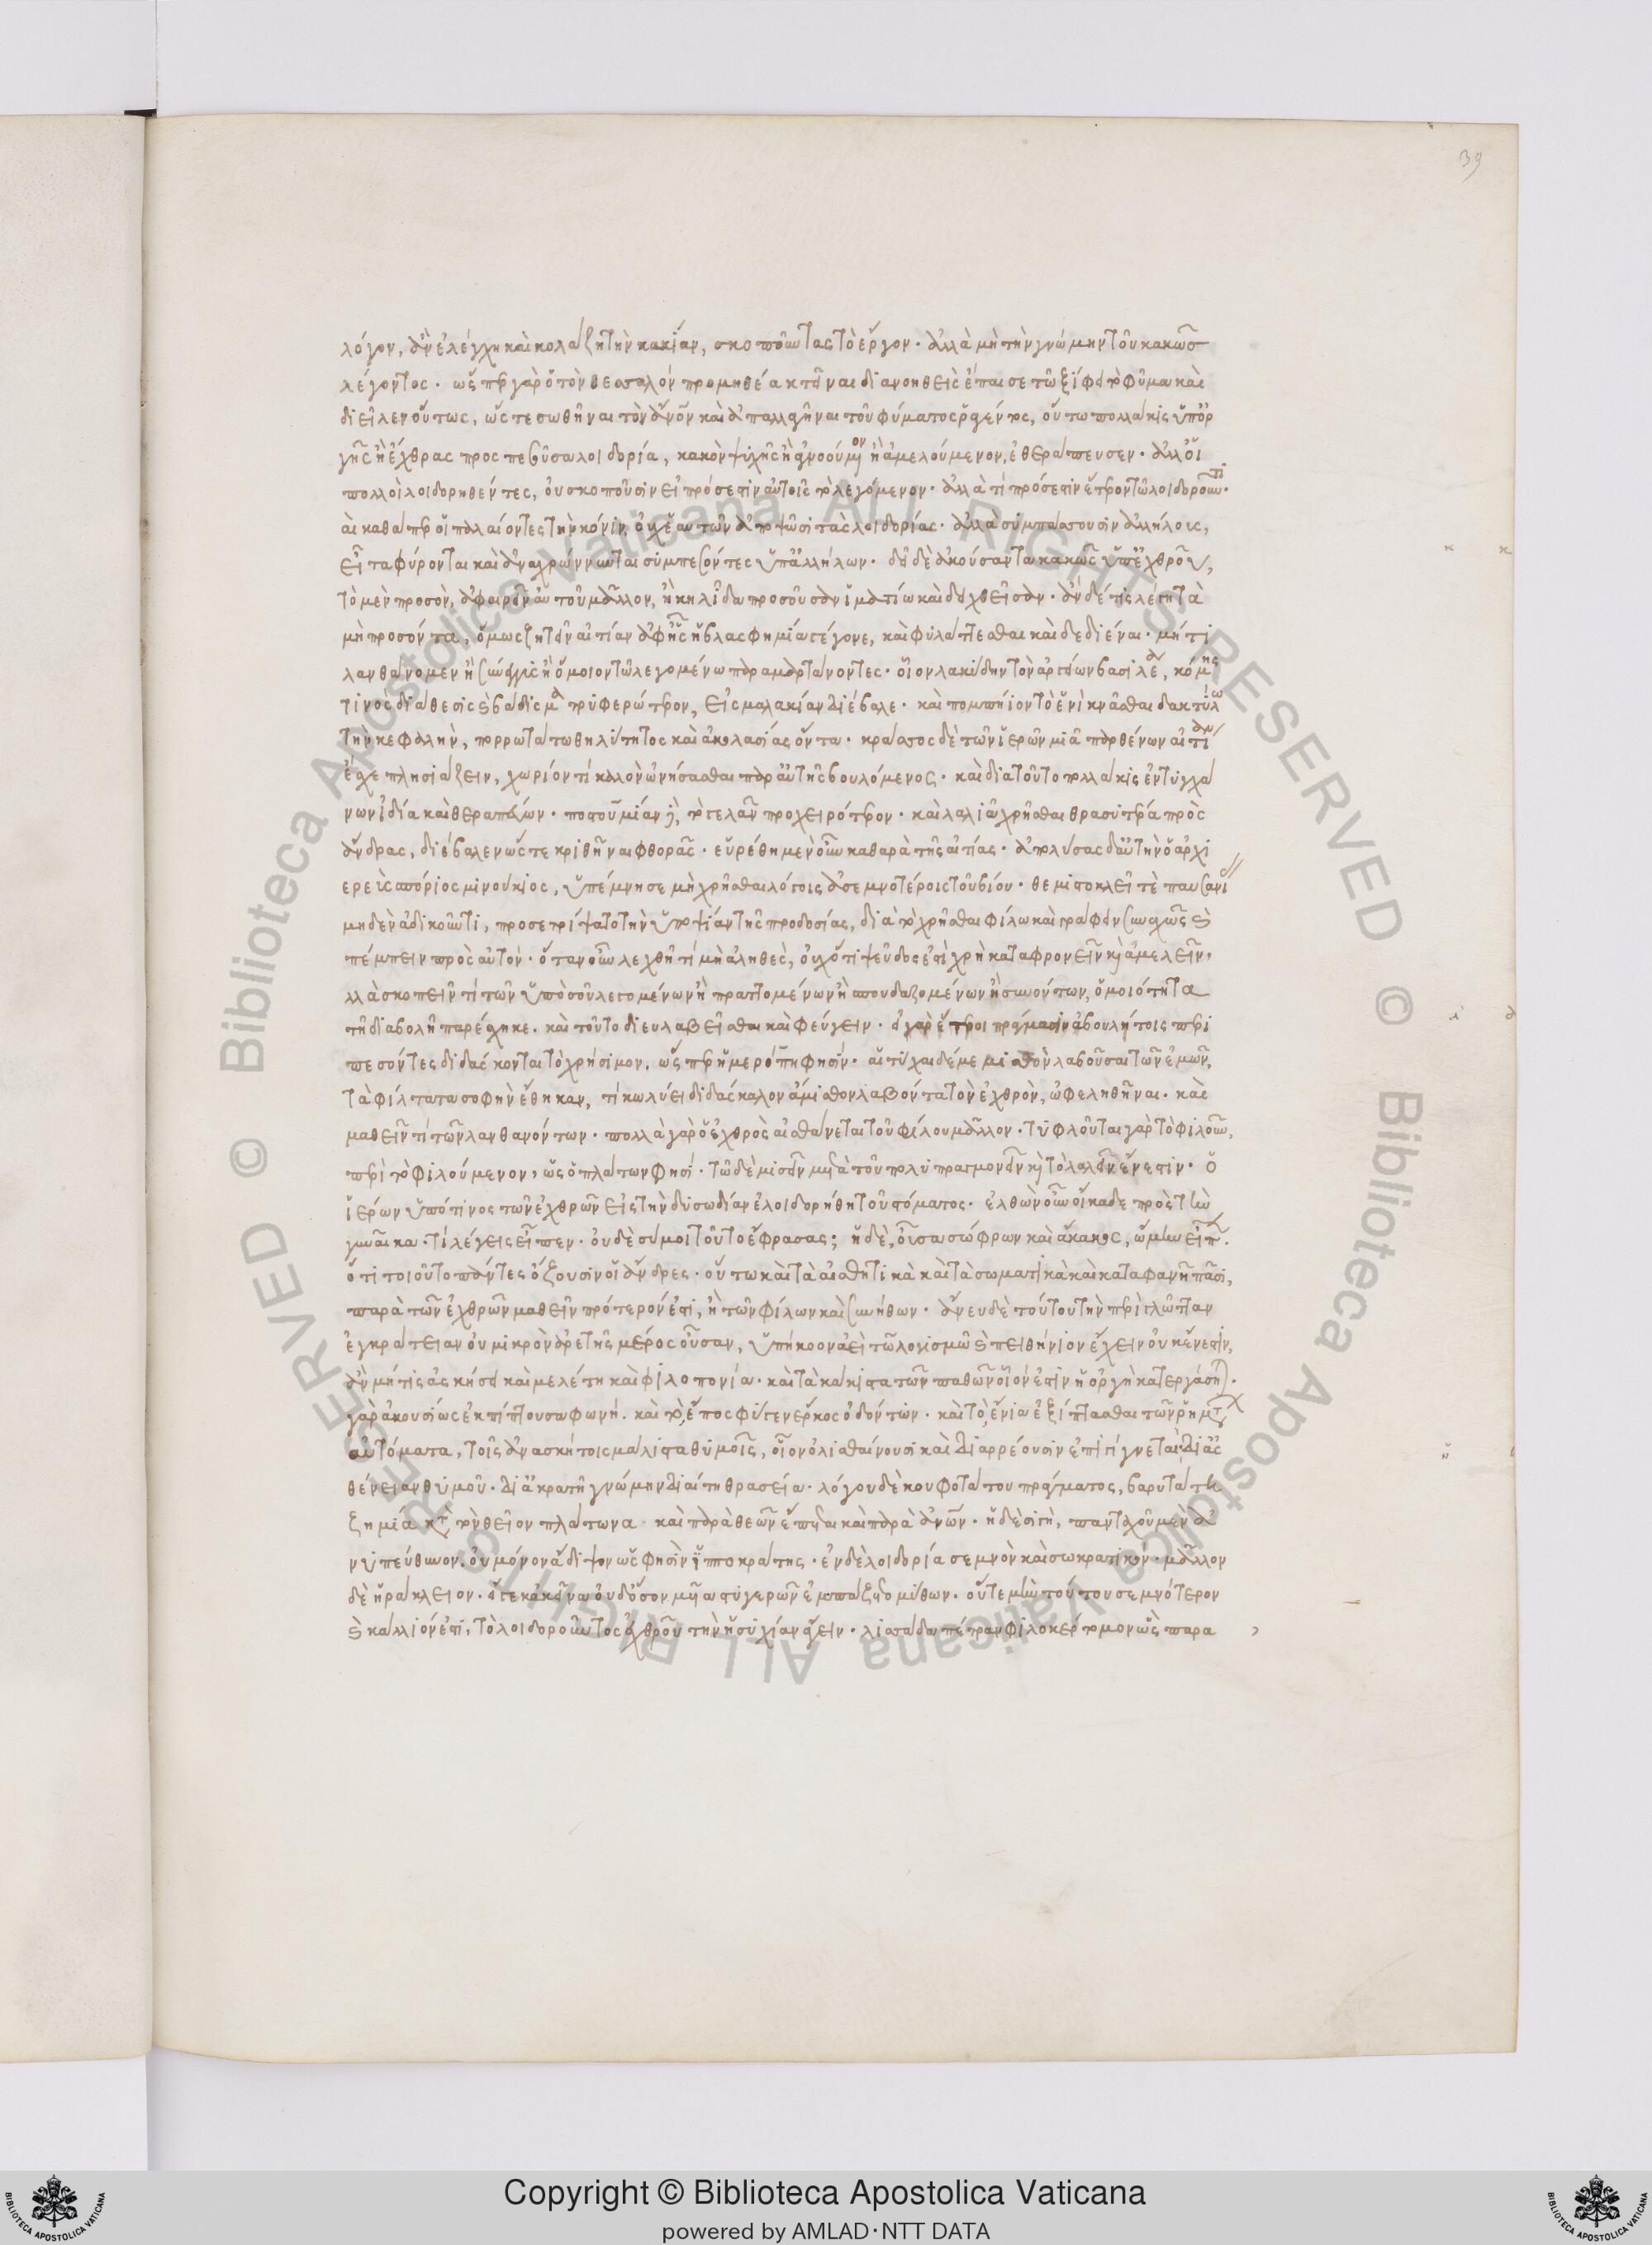 39
λόγον, ἂν ἐλέγχη καὶ κολάζη τὴν κακίαν, σκοποῦντας τὸ ἔργον· ἀλλὰ μὴ τὴν γνώμην τοῦ κακῶς
λέγοντος· ὥσπερ γὰρ ὁ τὸν θεσσαλὸν προμηθέα κτεῖναι διανοηθεὶς ἔπαισε τῶ ξίφει τὸ φῦμα καὶ
διεῖλεν οὕτως, ὥστε σωθῆναι τὸν ἄνον καὶ ἀπαλλαγῆναι τοῦ φύματος ῥαγέντος, οὕτω πολλάκις ὑπὀρ
γῆς ἢ ἔχθρας προσπεσοῦσα λοιδορία, κακὸν ψυχῆς ἢ ἀγνοούμενον ἢ ἀμελούμενον, ἐθεράπευσεν· ἀλλοἱ
πολλοὶ λοιδορηθέντες, οὐ σκοποῦσιν εἰ πρόσεστιν αὐτοῖς τὸ λεγόμενον· ἀλλὰ τί πρόσεστιν ἕτερον τῶ λοιδοροῦντι·
καὶ καθάπερ οἱ παλαίοντες τὴν κόνιν, οὐχ ἑαυτῶν ἀποψῶσι τὰς λοιδορίας· ἀλλὰ συμπάσσουσιν ἀλλήλους,
εἶτα φύρονται καὶ ἀναχρώννυνται συμπεσόντες ὑπἀλλήλων· δεῖ δὲ ἀκούσαντα κακῶς ὑπἐχθροῦ,
τὸ μὲν προσὸν, ἀφαιρεῖν αὑτοῦ μᾶλλον, ἢ κηλῖδα προσοῦσαν ἱματίω καὶ δειχθεῖσαν· ἂν δέ τις λέγη τὰ
μὴ προσόντα, ὅμως ζητεῖν αἰτίαν ἀφῆς ἡ βλασφημία γέγονε, καὶ φυλάττεσθαι καὶ δεδιέναι· μή τι
λανθάνομεν ἢ σύνεγγυς ἢ ὅμοιον τῶ λεγομένω παραμαρτάνοντες· οἷον λακύδην τὸν ἀργείων βασιλέα, κόμης
τινὸς διάθεσις καὶ βάδισμα τρυφερώτερον, εἰς μαλακίαν διέβαλε· καὶ πομπήιον τὸ ἑνὶ κνᾶσθαι δακτύλω
τὴν κεφαλὴν, πορρωτάτω θηλύτητος καὶ ἀκολασίας ὄντα· κράσσος δὲ τῶν ἱερῶν μιᾶ παρθένων αἰτίαν
ἔσχε πλησιάζειν, χωρίον τί καλὸν ὠνήσασθαι παραὐτῆς βουλόμενος· καὶ διατοῦτο πολλάκις ἐντυγχά
νων ἰδία καὶ θεραπεύων· ποστουμίαν καὶ, τὸ γελᾶν προχειρότερον· καὶ λαλιᾶ χρῆσθαι θρασυτέρα πρὸς
ἄνδρας, διέβαλεν ὥστε κριθῆναι φθορᾶς· εὑρέθη μὲν οὖν καθαρὰ τῆς αἰτίας· ἀπολύσας δαὐτὴν ὁ ἀρχι
ερεὺς σπόριος μινούκιος, ὑπέμνησε μὴ χρῆσθαι λόγοις ἀσεμνοτέροις τοῦ βίου· θεμιστοκλεῖ τὲ παυσανί
μηδὲν ἀδικοῦντι, προσετρίψατο τὴν ὑποψίαν τῆς προδοσίας, διὰ τὸ χρῆσθαι φίλω καὶ γράφειν συνεχῶς καὶ
πέμπειν πρὸς αὐτόν· ὅταν οὖν λεχθῆ τί μὴ ἀληθὲς, οὐχ ὅτι ψεῦδος ἐστὶ χρὴ καταφρονεῖν καὶ ἀμελεῖν·
λλὰ σκοπεῖν τί τῶν ὑπὸ σοῦ λεγομένων ἢ πραττομένων ἢ σπουδαζομένων ἢ συνόντων, ὁμοιότητα
τῆ διαβολῆ παρέσχηκε. καὶ τοῦτο διευλαβεῖσθαι καὶ φεύγειν· εἰ γὰρ ἕτεροι πράγμασιν ἀβουλήτοις περι
πεσόντες διδάσκονται τὸ χρήσιμον, ὥσπερ ἡ μερόπη φησίν· αἱ τύχαι δέ με μισθὸν λαβοῦσαι τῶν ἐμῶν,
τὰ φίλτατα σοφὴν ἔθηκαν, τί κωλύει διδάσκαλον ἄμισθον λαβόντα τὸν ἐχθρὸν, ὠφεληθῆναι· καὶ
μαθεῖν τί τῶν λανθανόντων· πολλὰ γὰρ ὁ ἐχθρὸς αἰσθάνεται τοῦ φίλου μᾶλλον· τυφλοῦται γὰρ τὸ φιλοῦν,
περὶ τὸ φιλούμενον, ὡς ὁ πλάτων φησί· τῶ δὲ μισεῖν μετὰ τοῦ πολυπραγμονεῖν καὶ τὸ λαλεῖν ἔνεστιν· ὁ
ἱέρων ὑπό τινος τῶν ἐχθρῶν εἰς τὴν δυσωδίαν ἐλοιδορήθη τοῦ στόματος· ἐλθὼν οὖν οἴκαδε πρὸς τὴν
γυναῖκα· τί λέγεις εἶπεν· οὐδὲ σύ μοι τοῦτο ἔφρασας; ἡ δὲ, οὖσα σώφρων καὶ ἄκακος, ὤμην εἶπεν·
ὅτι τοιοῦτο πάντες ὄζουσιν οἱ ἄνδρες· οὕτω καὶ τὰ αἰσθητικὰ καὶ τὰ σωματικὰ καὶ καταφανῆ πᾶσι,
παρὰ τῶν ἐχθρῶν μαθεῖν πρότερόν ἐστι, ἢ τῶν φίλων καὶ συνήθων· ἄνευ δὲ τούτου τὴν περὶ γλῶτταν
ἐγκράτειαν οὐ μικρὸν ἀρετῆς μέρος οὖσαν, ὑπήκοον ἀεὶ τῶ λογισμῶ καὶ πειθήνιον ἔχειν οὐκ ἔνεστιν,
ἂν μή τις ἀσκήσει καὶ μελέτη καὶ φιλοπονία· καὶ τὰ κάκιστα τῶν παθῶν οἷόν ἐστιν ἡ ὀργὴ κατεργάσηται·
γὰρ ἀκουσίως ἐκπίπτουσα φωνή. καὶ τὸ, ἔπος φύγεν ἕρκος ὀδόντων· καὶ τὸ, ἔνια ἐξίπτασθαι τῶν ῥημάτων
αὐτόματα, τοῖς ἀνασκήτοις μάλιστα θυμοῖς, οἷον ὀλισθαίνουσι καὶ διαρρέουσιν ἐπιγίγνεται· διἀσ
θένειαν θυμοῦ· διἀκρατῆ γνώμην διαίτη θρασεία· λόγου δὲ κουφοτάτου πράγματος, βαρυτάτη
ζημία κατὰ τὸν θεῖον πλάτωνα· καὶ παρὰ θεῶν ἕπεται καὶ παρὰ ἀνῶν· ἡ δὲ σιγὴ, πανταχοῦ μὲν ἀ
νυπεύθυνον. οὐ μόνον ἄδιψον ὥς φησὶν ἱπποκράτης· ἐν δὲ λοιδορία σεμνὸν καὶ σωκρατικόν· μᾶλλον
δὲ ἡράκλειον. εἴγε κἀκεῖνος οὐδὅσον μυίας στυγερῶν ἐμπάζετο μύθων. οὔτε μὴν τούτου σεμνότερον
καὶ κάλλιόν ἐστι, τὸ λοιδοροῦντος ἐχθροῦ τὴν ἡσυχίαν ἄγειν· λισσάδα πέτραν φιλοκέρτομον ὣς παρα